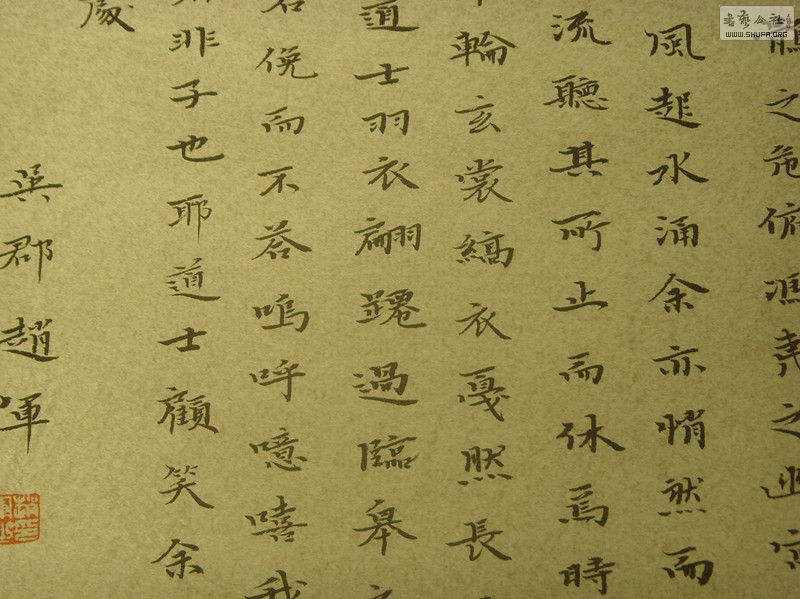 鶻之危俯馮夷之幽宮
風起水涌余亦悄然而
流聽其所止而休焉時
輪玄裳縞衣戛然長
道士羽衣翩躚過臨皋
俛而不答嗚呼噫嘻我
非子也耶道士顧笑余
處
吳郡趙暉
書藝公社
WWW.SHUFA.ORG